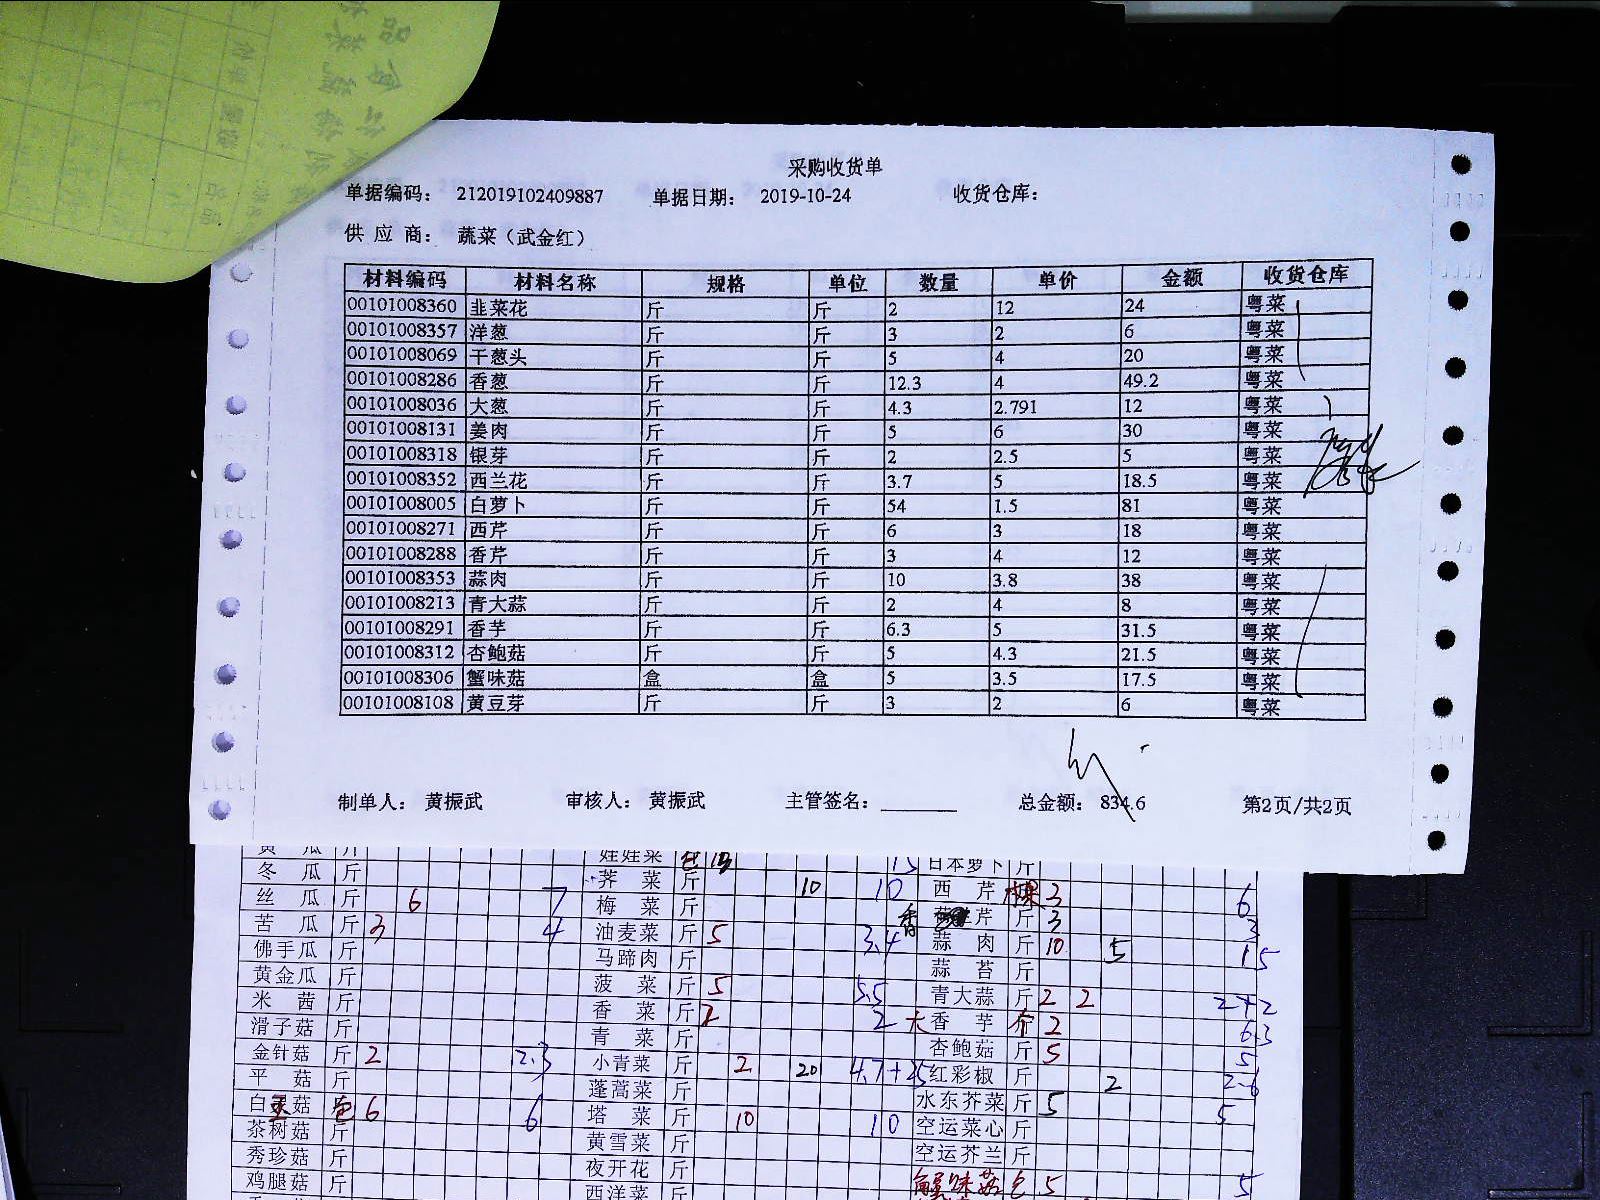 采购收货单
单据编码： 212019102409887 单据日期： 2019-10-24 收货仓库：
供 应 商： 蔬菜（武金红）
材料编码 材料名称 规格 单位 数量 单价 金额 收货仓库
00101008360 韭菜花 斤 斤 2 12 24 粤菜
00101008357 洋葱 斤 斤 3 2 6 粤菜
00101008069 干葱头 斤 斤 5 4 20 粤菜
00101008286 香葱 斤 斤 12.3 4 49.2 粤菜
00101008036 大葱 斤 斤 4.3 2.791 12 粤菜
00101008131 姜肉 斤 斤 5 6 30 粤菜
00101008318 银芽 斤 斤 2 2.5 5 粤菜
00101008352 西兰花 斤 斤 3.7 5 18.5 粤菜
00101008005 白萝卜 斤 斤 54 1.5 81 粤菜
00101008271 西芹 斤 斤 6 3 18 粤菜
00101008288 香芹 斤 斤 3 4 12 粤菜
00101008353 蒜肉 斤 斤 10 3.8 38 粤菜
00101008213 青大蒜 斤 斤 2 4 8 粤菜
00101008291 香芋 斤 斤 6.3 5 31.5 粤菜
00101008312 杏鲍菇 斤 斤 5 4.3 21.5 粤菜
00101008306 蟹味菇 盒 盒 5 3.5 17.5 粤菜
00101008108 黄豆芽 斤 斤 3 2 6 粤菜
制单人： 黄振武 审核人： 黄振武 主管签名： 总金额： 834.6 第2页/共2页
黄 瓜 斤 娃娃菜 15 日本萝卜 斤
冬 瓜 斤 荠 菜 斤 10 10 西 芹 3 6
丝 瓜 斤 6 7 梅 菜 斤 香 芹 斤 3 3
苦 瓜 斤 3 4 油麦菜 斤 5 3.4 蒜 肉 斤 10 5 15
佛手瓜 斤 马蹄肉 斤 蒜 苔 斤
黄金瓜 斤 菠 菜 斤 5 5.5 青大蒜 斤 2 2 2+2
米 茜 斤 香 菜 斤 2 2 大 香 芋 个 2 6.3
滑子菇 斤 青 菜 斤 杏鲍菇 斤 5 5
金针菇 斤 2 2.3 小青菜 斤 2 20 4.7+25 红彩椒 斤 2 2.6
平 菇 斤 蓬蒿菜 斤 水东芥菜 斤 5 5
白灵菇 包 6 6 塔 菜 斤 10 10 空运菜心 斤
茶树菇 斤 黄雪菜 斤 空运芥兰 斤
秀珍菇 斤 夜开花 斤 蟹味菇 5 5
鸡腿菇 斤 西洋菜 斤